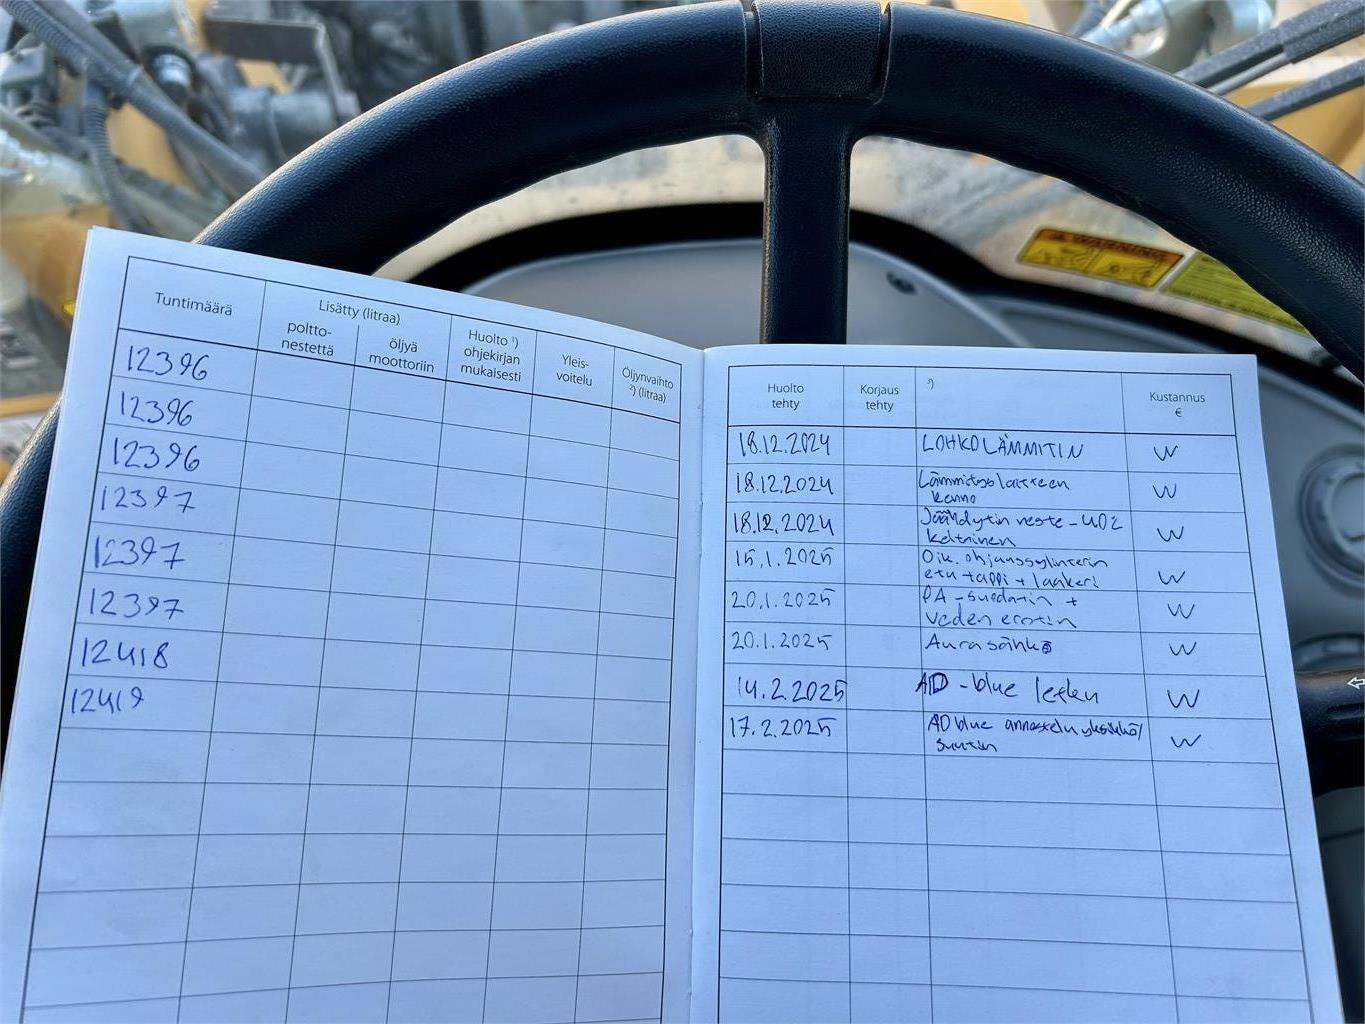 WARNING
Tuntimäärä
Lisätty (litraa)
poltto-
nestettä
öljyä
moottoriin
Huolto ¹)
ohjekirjan
mukaisesti
Yleis-
voitelu
Öljynvaihto
²) (litraa)
12396
12396
12396
12397
12397
12397
12418
12419
Huolto
tehty
Korjaus
tehty
³)
Kustannus
€
18.12.2024 LOHKOLÄMMITIN W
18.12.2024 Lämmityslaitteen
kenno W
18.12.2024 Jäähdytin neste -402
keltainen W
15.1.2025 Oik. ohjaussylinterin
etu tappi + laakeri W
20.1.2025 PA-suodatin +
veden erotin W
20.1.2025 Aurasähkö W
14.2.2025 AD-blue letku W
17.2.2025 AD blue annosteluyksikkö/
suutin W